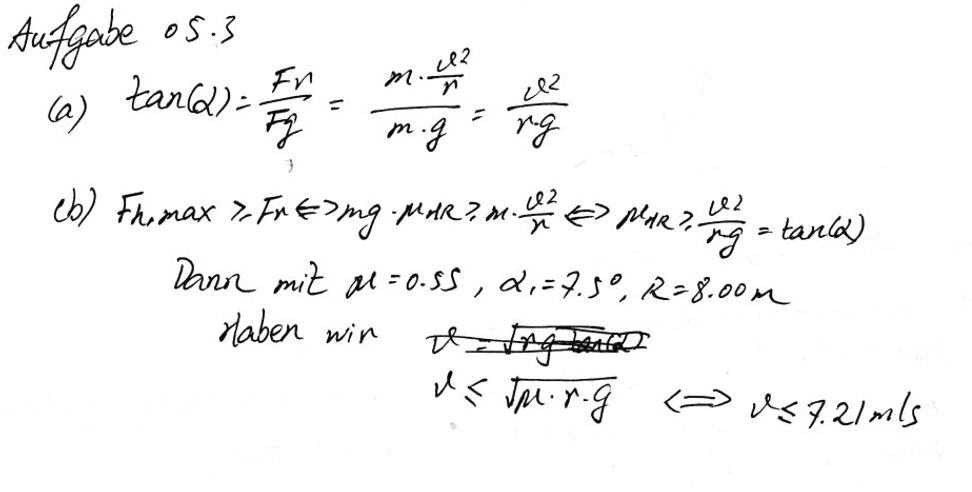 Aufgabe 05.3
(a) tan(α) = Fr / Fg = (m · v²/r) / (m · g) = v² / (r·g)
(b) Fh,max ≥ Fr ⟺ mg · μHR ≥ m · v²/r ⟺ μHR ≥ v²/(rg) = tan(α)
Dann mit μ = 0.55, α₁ = 7.5°, R = 8.00 m
Haben wir v = √(rg tan(α))
v ≤ √(μ · r · g) ⟺ v ≤ 7.21 m/s